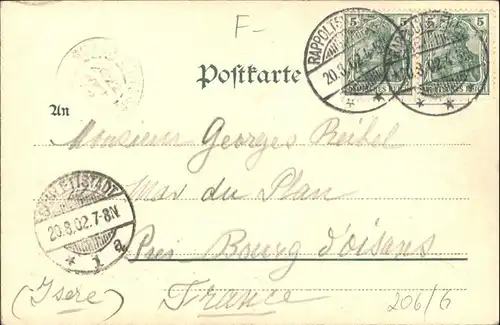 F-
5 5
RAPPOLTS
20.8.02.
8.02.
Postkarte
An
Monsieur Georges Reibel
Mas du Plan
SCHLETTSTADT
20.8.02.7-8N.
* 1 a
Bourg d'oisans
(Isere) France
206/6